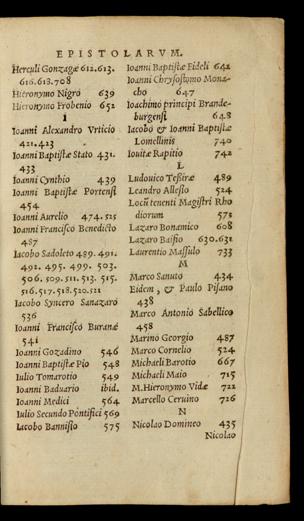 EPISTOLARVM.
Herculi Gonzagæ 612.613.
616.618.708
Hieronymo Nigro 639
Hieronymo Frobenio 652
I
Ioanni Alexandro Vrticio
421.423
Ioanni Baptistæ Stato 431.
433
Ioanni Cynthio 439
Ioanni Baptistæ Portensi
454
Ioanni Aurelio 474.525
Ioanni Francisco Benedicto
487
Iacobo Sadoleto 489.491.
492.495.499.503.
506.509.511.513.515.
516.517.518.520.521
Iacobo Syncero Sanazaro
536
Ioanni Francisci Buranæ
541
Ioanni Gozadino 546
Ioanni Baptistæ Pio 548
Iulio Tomarotio 549
Ioanni Baduario ibid.
Ioanni Medici 564
Iulio Secundo Põtifici 569
Iacobo Bannisio 575
Ioanni Baptistæ Fideli 642
Ioanni Chrysostomo Mona-
cho 647
Ioachimo principi Brande-
burgensi 648
Iacobo & Ioanni Baptistæ
Lomellinis 740
Iouitæ Rapitio 742
L
Ludouico Tesiræ 489
Leandro Allesio 524
Locũtenenti Magistri Rho
diorum 571
Lazaro Bonamico 608
Lazaro Baisio 630.631
Laurentio Massulo 733
M
Marco Sanuto 434
Eidem, & Paulo Pisano
438
Marco Antonio Sabellico
458
Marino Georgio 487
Marco Cornelio 524
Michaeli Barotio 667
Michaeli Maio 715
M. Hieronymo Vidæ 722
Marcello Ceruino 726
N
Nicolao Domineo 435
Nicolao